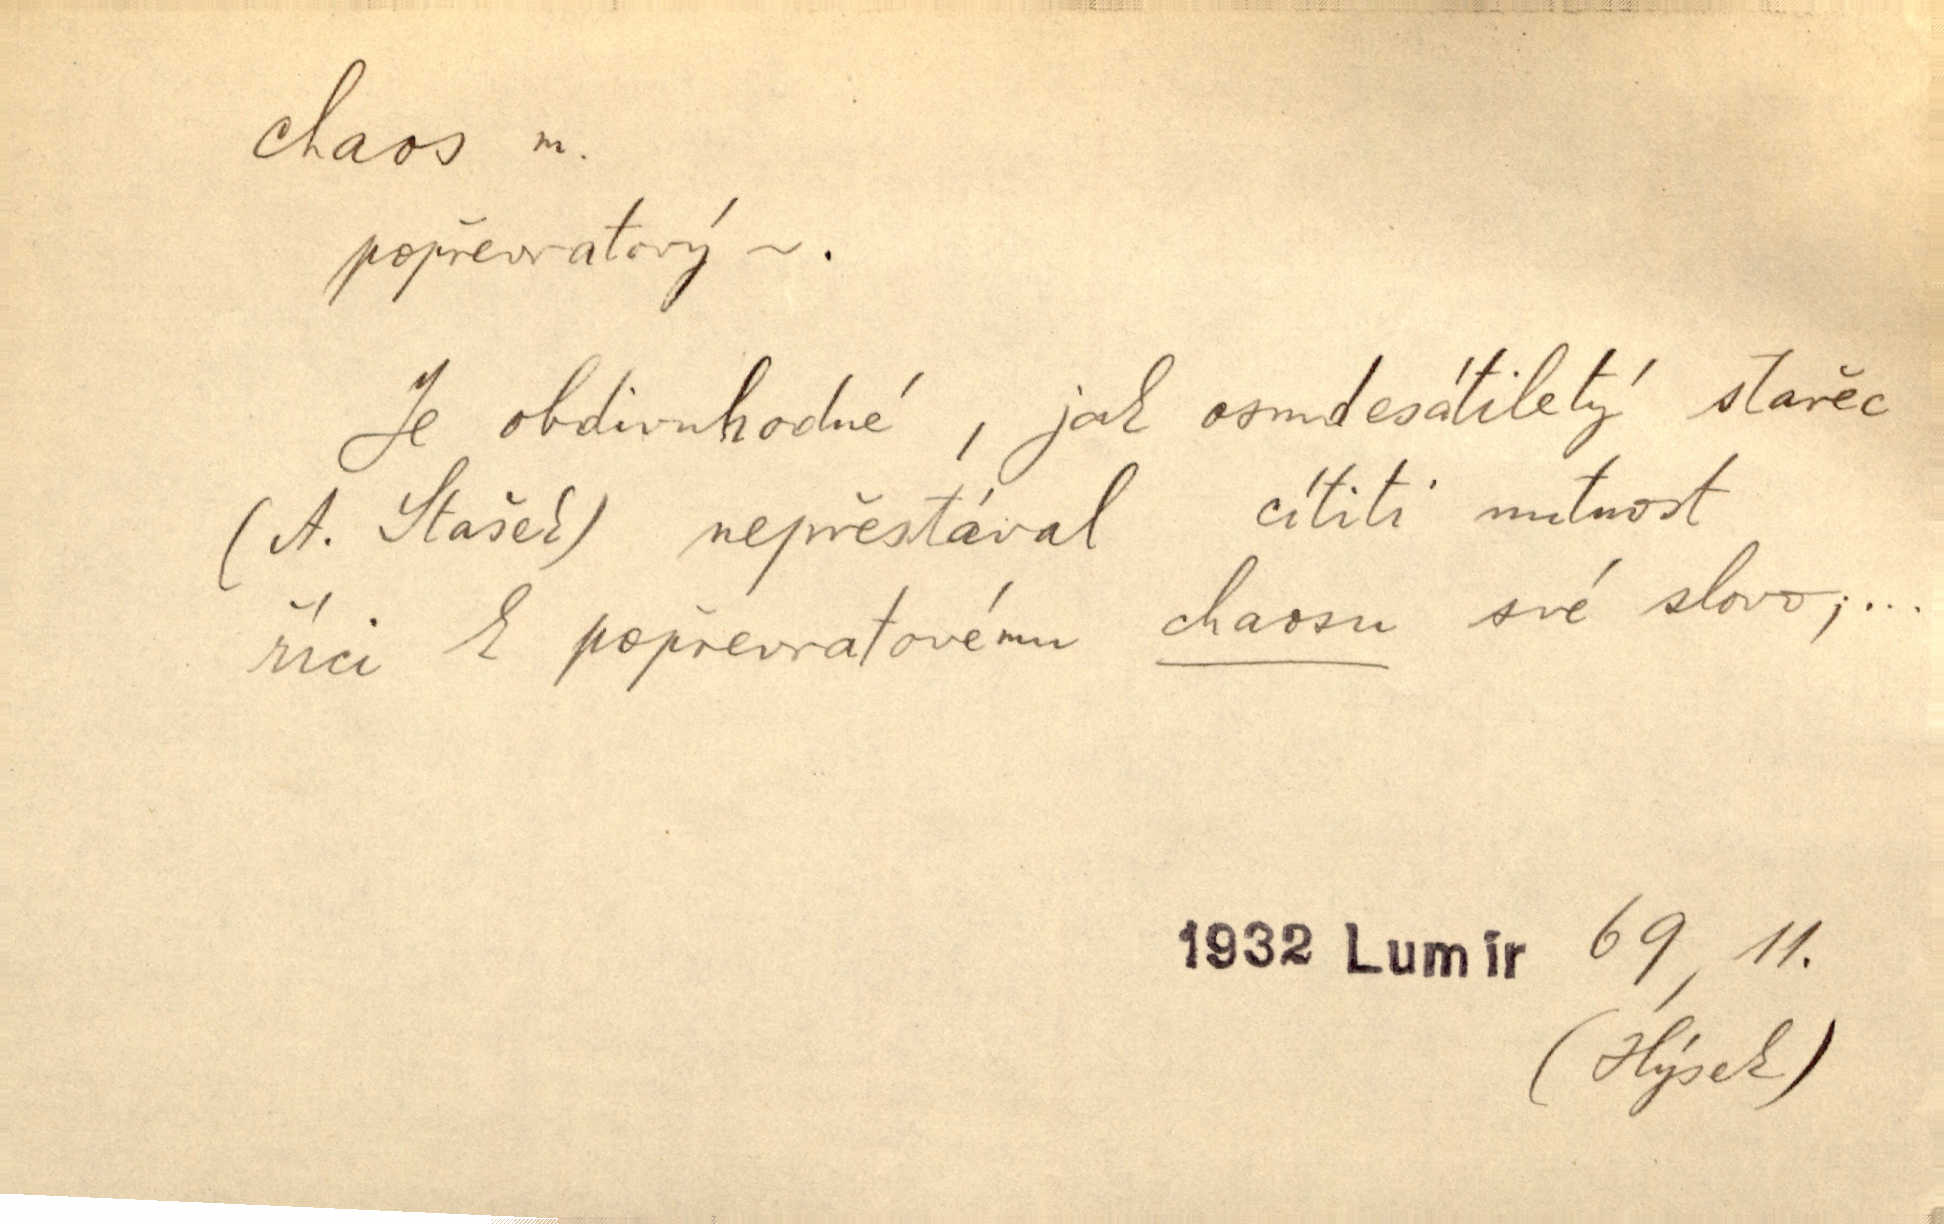 chaos m.
popřevratový ~.
Je obdivuhodné, jak osmdesátiletý stařec
(A. Stašek) nepřestával cítiti nutnost
říci k popřevratovému chaosu své slovo; ...
1932 Lumír 69, 11.
(Hýsek)